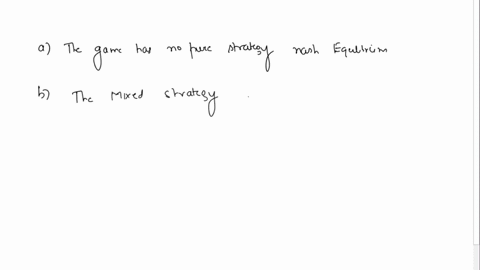 a) The game has no pure strategy nash Equlibrium
b) The Mixed strategy